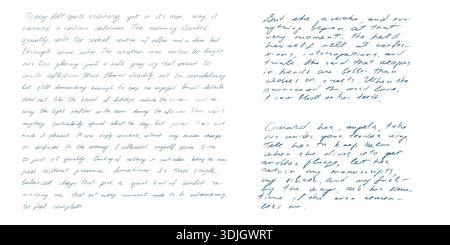 Today felt quite ordinary, yet in its own way it
carried a certain calmness. The morning started
quietly, with the usual routine of coffee and a slow look
through some notes. The weather was neither too bright
nor too gloomy, just a soft gray sky that seemed to
invite reflection. Work flowed steadily, not too overwhelming
but still demanding enough to keep me engaged. Small details
stood out, like the sound of footsteps outside the window and the
way the light shifted in the room during the afternoon. There wasn't
anything particularly special about the day, but perhaps that's what
made it pleasant. It was simply, without any sudden change
or surprises to the evening. I allowed myself some time
to just sit quietly, thinking of nothing in particular, letting the
pass without pressure. Sometimes it's those simple,
balanced days that give a quiet kind of comfort re-
minding me that not every moment needs to be extraordinary
to feel complete.
But she awoke, and eve-
rything began at that
very moment. She held
herself well at confes-
sions, interrogations, and
trials. She said that weapons
in hands are better than
crosses on chests. When she
pronounced the word love,
I saw blood on her teeth.
Guard her, angels, take
her under your tender wing
Tell her to keep calm
when she dives into yet
another plunge, let her
return my manuscripts,
my silver and my
By the way, ask her some-
time if she ever remem-
bers me.
alamy
Image ID: 3DJGWRT
www.alamy.com